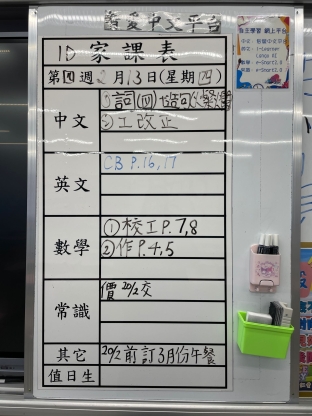 智愛中文平台
1D 家課表
第四週 2月13日(星期四)
中文
①詞(四)
②工改正
英文
CB P.16,17
數學
①校工P.7,8
②作P.4,5
常識
價 20/2交
其它
20/2前訂3月份午餐
值日生
自主學習 網上平台